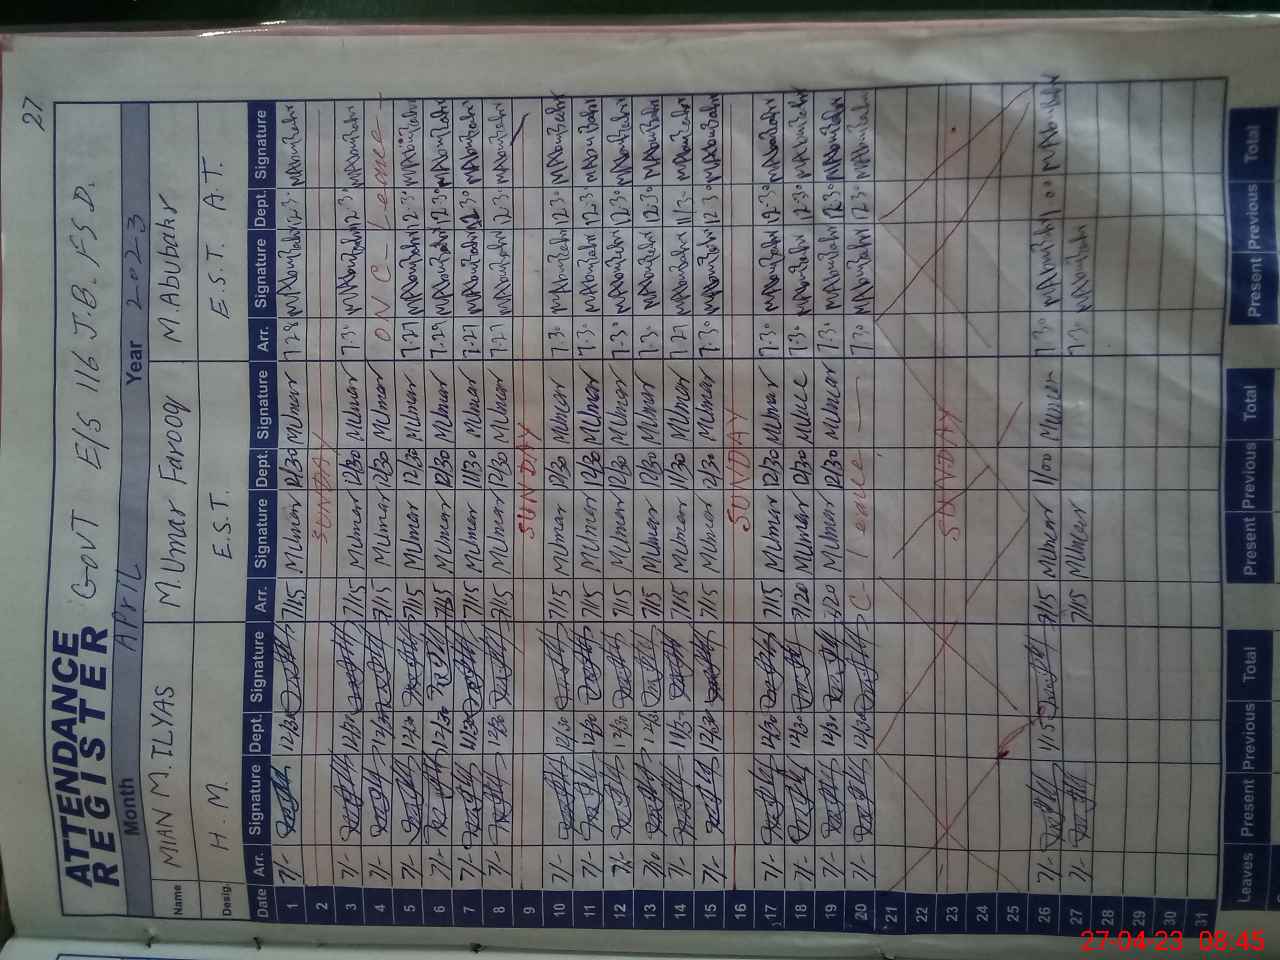 27
ATTENDANCE
REGISTER
GOVT E/S 116 J.B. FSD.
Month APRIL Year 2023
Name MIAN M. ILYAS M. Umar Farooq M. Abubakr
Desig. H. M. E.S.T. E.S.T. A.T.
Date Arr. Signature Dept. Signature Arr. Signature Dept. Signature Arr. Signature Dept. Signature
1 7/- 12/30 7/15 MUmar 12/30 MUmar 7.28 MAbuBakr 12.30 MAbuBakr
2 SUNDAY
3 7/- 12/30 7/15 MUmar 12/30 MUmar 7.30 MAbuBakr 12.30 MAbuBakr
4 7/- 12/30 7/15 MUmar 12/30 MUmar ON C-Leave-
5 7/- 12/30 7/15 MUmar 12/30 MUmar 7.27 MAbuBakr 12.30 MAbuBakr
6 7/- 12/30 MUmar 12/30 MUmar 7.29 MAbuBakr 12.30 MAbuBakr
7 7/- 11/30 7/15 MUmar 11/30 MUmar 7.27 MAbuBakr MAbuBakr
8 7/- 12/30 7/15 MUmar 12/30 MUmar 7.27 MAbuBakr 12.30 MAbuBakr
9 SUNDAY
10 7/- 12/30 7/15 MUmar 12/30 MUmar 7.30 MAbuBakr 12.30 MAbuBakr
11 7/- 12/30 7/15 MUmar 12/30 MUmar 7.30 MAbuBakr 12.30 MAbuBakr
12 7/- 12/30 7/15 MUmar 12/30 MUmar 7.30 MAbuBakr 12.30 MAbuBakr
13 12/30 7/15 MUmar 12/30 MUmar 7.30 MAbuBakr 12.30 MAbuBakr
14 7/- 11/30 7/15 MUmar 11/30 MUmar 7.27 MAbuBakr 11/30 MAbuBakr
15 7/- 12/30 7/15 MUmar 12/30 MUmar 7.30 MAbuBakr 12.30 MAbuBakr
16 SUNDAY
17 7/- 12/30 7/15 MUmar 12/30 MUmar 7.30 MAbuBakr 12.30 MAbuBakr
18 7/- 12/30 7/20 MUmar 12/30 7.30 MAbuBakr 12.30 MAbuBakr
19 7/- 12/30 7/20 MUmar 12/30 MUmar 7.30 MAbuBakr 12.30 MAbuBakr
20 7/- 12/30 C- Leave 7.30 MAbuBakr 12.30 MAbuBakr
21
22
23 SUNDAY
24
25
26 7/- 7/15 MUmar 1/00 MUmar 7.30 MAbuBakr 1.00 MAbuBakr
27 7/- 7/15 MUmar 7.30 MAbuBakr
28
29
30
31
Leaves Present Previous Total Present Previous Total Present Previous Total
27-04-23 08:45